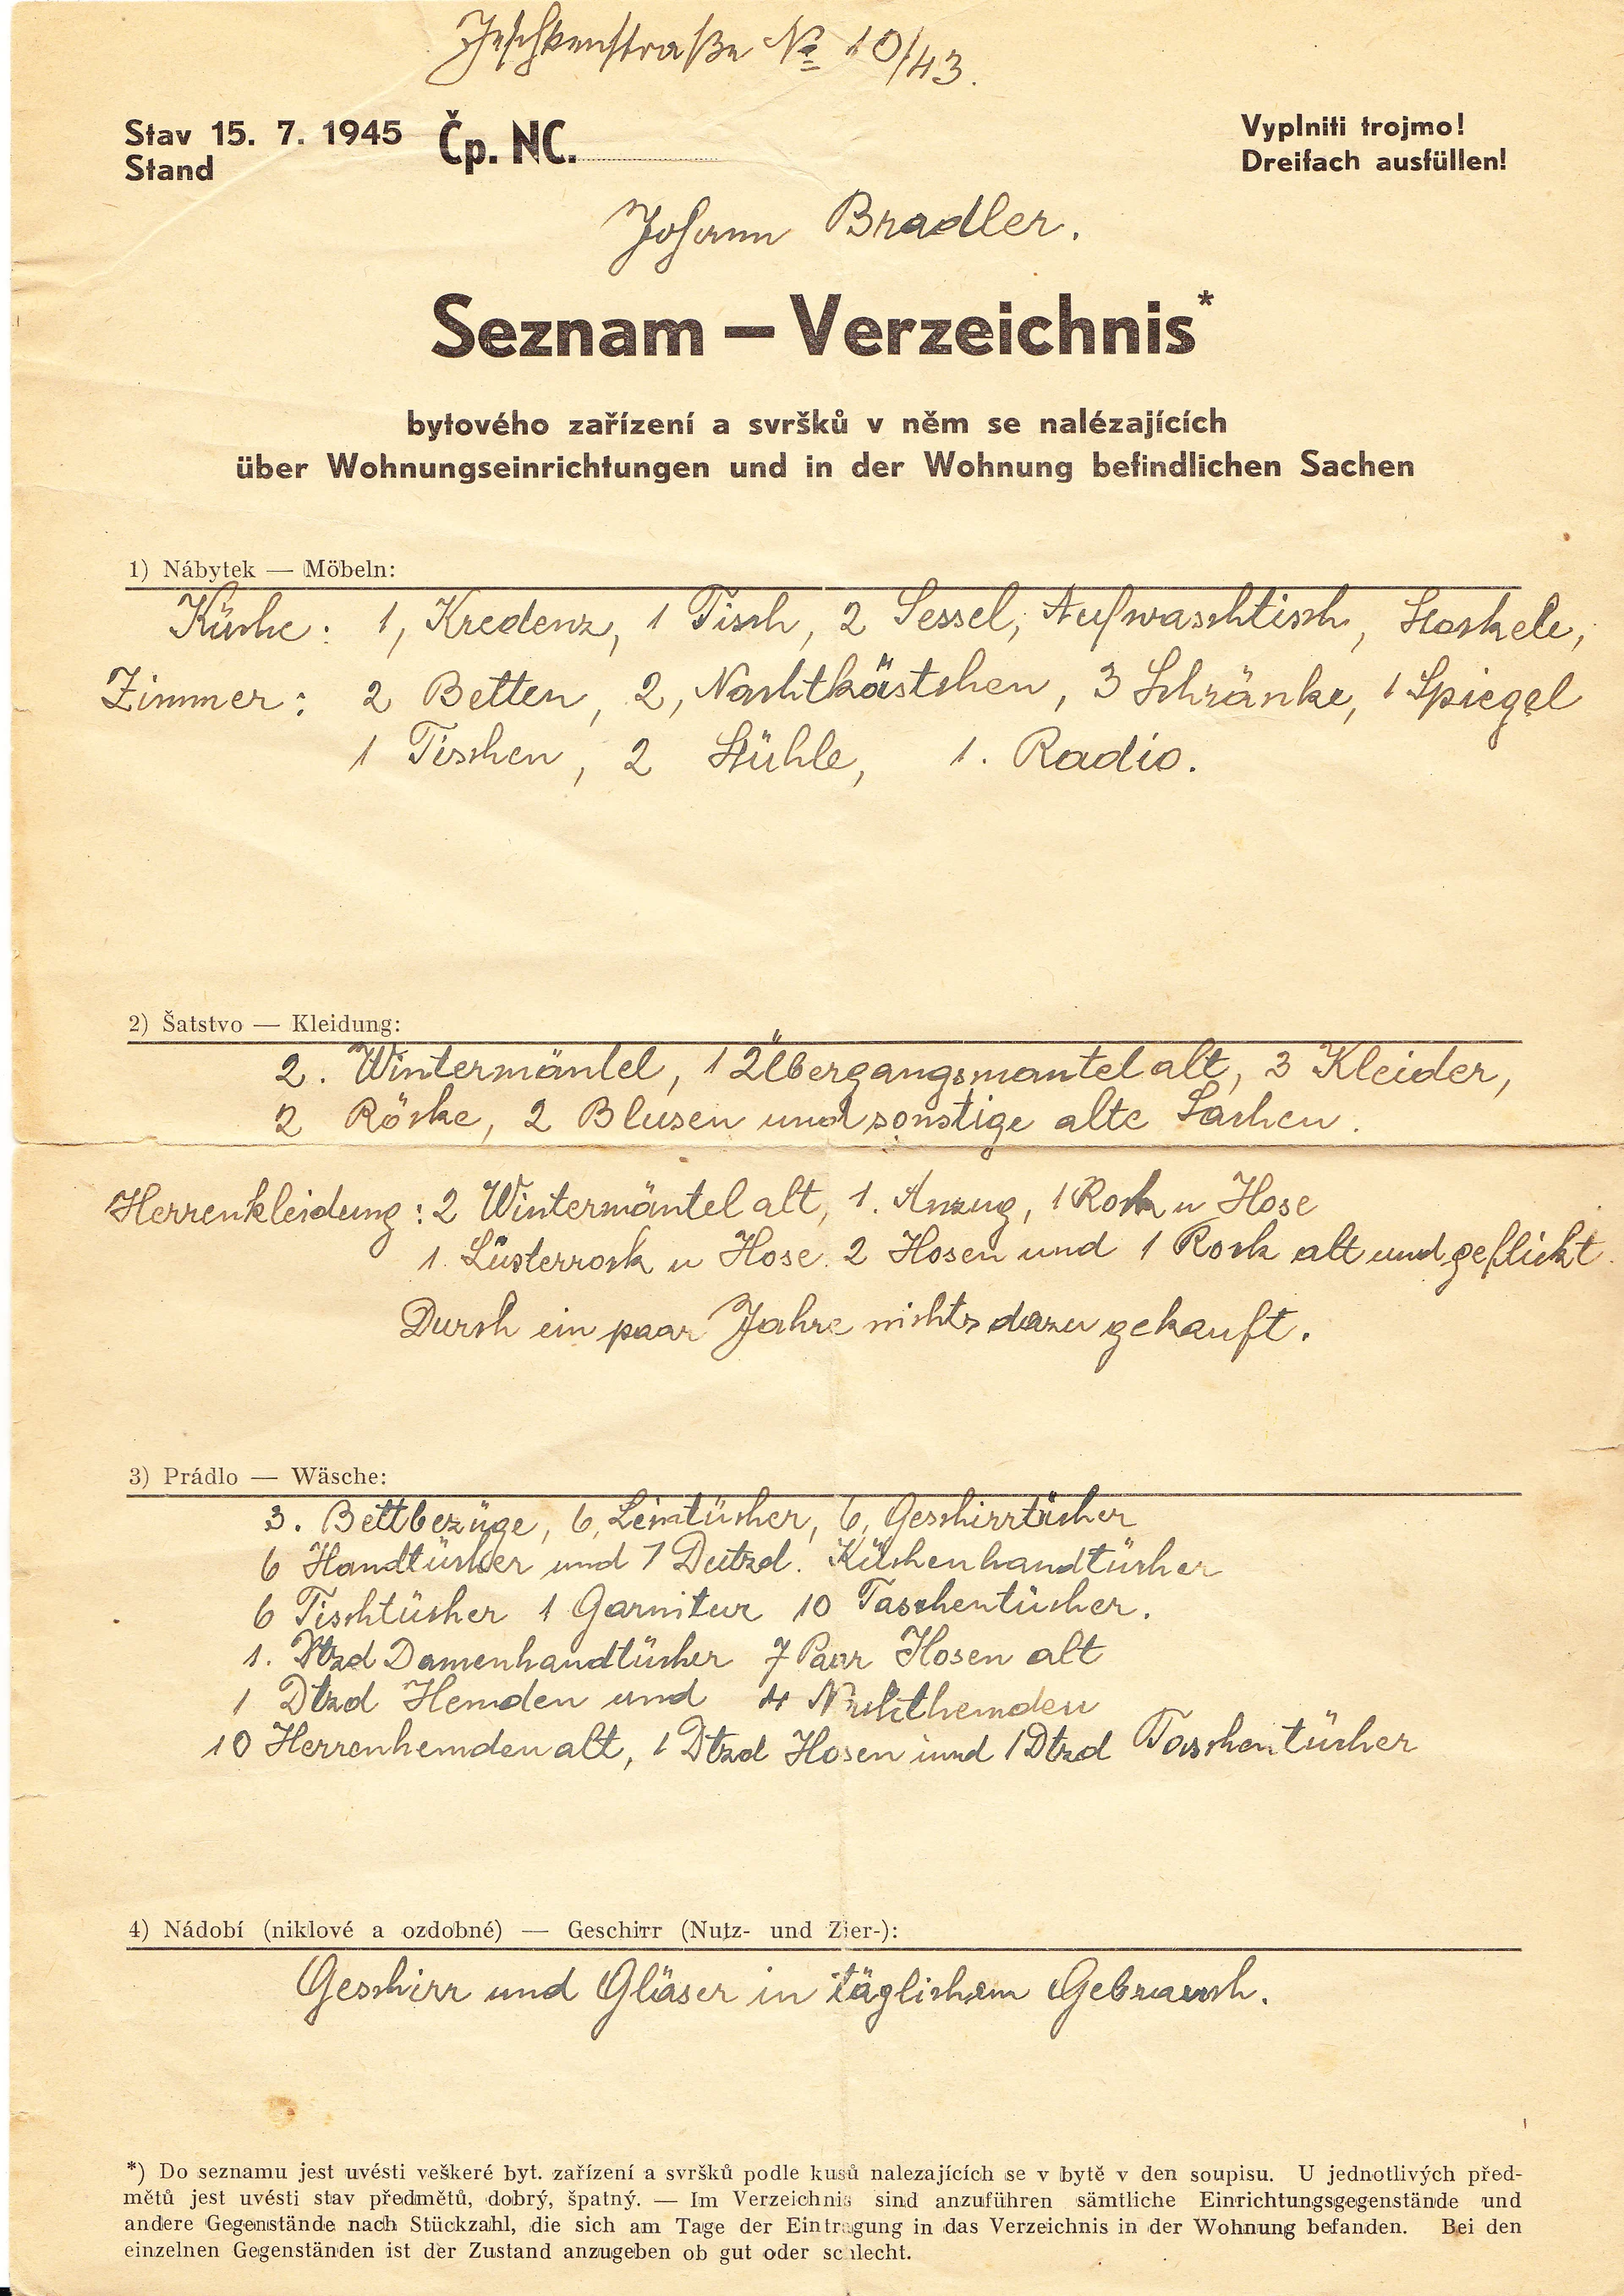 Jeschkenstraße No 10/43.
Stav 15. 7. 1945 Čp. NC.
Stand
Vyplniti trojmo!
Dreifach ausfüllen!
Johann Bradler.
Seznam — Verzeichnis*
bytového zařízení a svršků v něm se nalézajících
über Wohnungseinrichtungen und in der Wohnung befindlichen Sachen
1) Nábytek — Möbeln:
Küche: 1, Kredenz, 1 Tisch, 2 Sessel, Aufwaschtisch, Stockele,
Zimmer: 2 Betten, 2, Nachtkästchen, 3 Schränke, 1 Spiegel
1 Tischen, 2 Stühle, 1. Radio.
2) Šatstvo — Kleidung:
2. Wintermäntel, 1 Übergangsmantel alt, 3 Kleider,
2 Röcke, 2 Blusen und sonstige alte Sachen.
Herrenkleidung: 2 Wintermäntel alt, 1. Anzug, 1 Rock u Hose
1. Lüsterrock u Hose. 2 Hosen und 1 Rock alt und geflickt.
Durch ein paar Jahre nichts dazu gekauft.
3) Prádlo — Wäsche:
3. Bettbezüge, 6, Leintücher, 6, Geschirrtücher
6 Handtücher und 1 Dutzd. Küchenhandtücher
6 Tischtücher 1 Garnitur 10 Taschentücher.
1. Dtzd Damenhandtücher 7 Paar Hosen alt
1 Dtzd Hemden und 4 Nachthemden
10 Herrenhemden alt, 1 Dtzd Hosen und 1 Dtzd Taschentücher
4) Nádobí (niklové a ozdobné) — Geschirr (Nutz- und Zier-):
Geschirr und Gläser in täglichem Gebrauch.
*) Do seznamu jest uvésti veškeré byt. zařízení a svršků podle kusů nalezajících se v bytě v den soupisu. U jednotlivých před-
mětů jest uvésti stav předmětů, dobrý, špatný. — Im Verzeichnis sind anzuführen sämtliche Einrichtungsgegenstände und
andere Gegenstände nach Stückzahl, die sich am Tage der Eintragung in das Verzeichnis in der Wohnung befanden. Bei den
einzelnen Gegenständen ist der Zustand anzugeben ob gut oder schlecht.